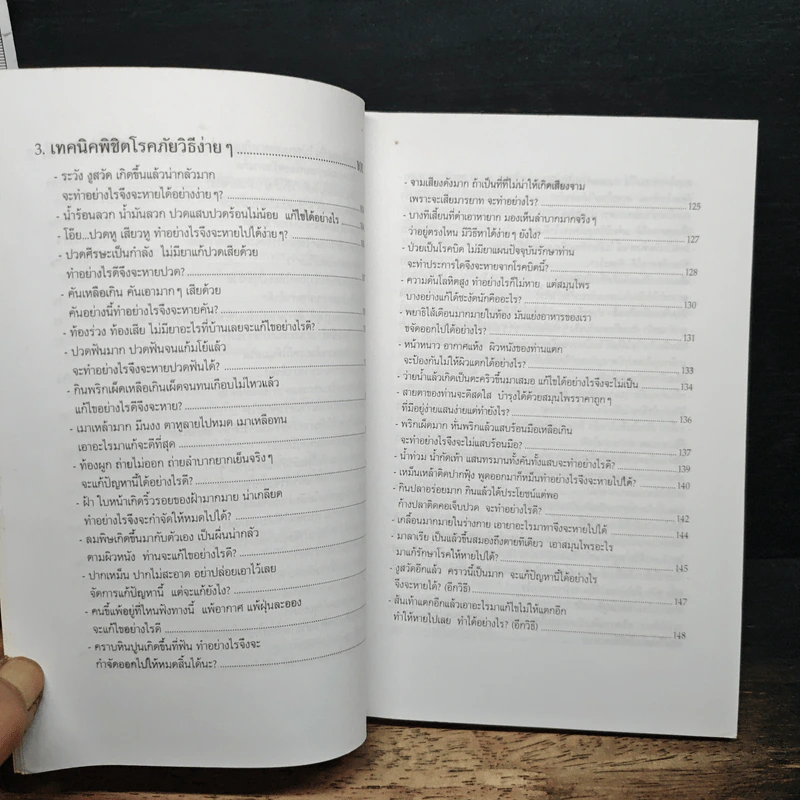 3. เทคนิคพิชิตโรคภัยวิธีง่าย ๆ
- ระวัง งูสวัด เกิดขึ้นแล้วน่ากลัวมาก
จะทำอย่างไรจึงจะหายได้อย่างง่าย ๆ?
- น้ำร้อนลวก น้ำมันลวก ปวดแสบปวดร้อนไม่น้อย แก้ไขได้อย่างไร
- โอ๊ย...ปวดหู เสียวหู ทำอย่างไรจึงจะหายไปได้ง่ายๆ?
- ปวดศีรษะเป็นกำลัง ไม่มียาแก้ปวดเสียด้วย
ทำอย่างไรดีจึงจะหายปวด?
- คันเหลือเกิน คันเอามากๆ เสียด้วย
คันอย่างนี้ทำอย่างไรจึงจะหายคัน?
- ท้องร่วง ท้องเสีย ไม่มียาอะไรที่บ้านเลยจะแก้ไขอย่างไรดี?
- ปวดฟันมาก ปวดฟันจนแก้มโย้แล้ว
จะทำอย่างไรจึงจะหายปวดฟันได้?
- กินพริกเผ็ดเหลือเกินเผ็ดจนทนเกือบไม่ไหวแล้ว
แก้ไขอย่างไรดีจึงจะหาย?
- เมาเหล้ามาก มึนงง ตาหูลายไปหมด เมาเหลือทน
เอาอะไรมาแก้จะดีที่สุด
- ท้องผูก ถ่ายไม่ออก ถ่ายลำบากยากเย็นจริงๆ
จะแก้ปัญหานี้ได้อย่างไรดี?
- ฝ้า ใบหน้าเกิดริ้วรอยของฝ้ามากมาย น่าเกลียด
ทำอย่างไรจึงจะกำจัดให้หมดไปได้?
- ลมพิษเกิดขึ้นมากับตัวเอง เป็นผื่นน่ากลัว
ตามผิวหนัง ท่านจะแก้ไขอย่างไรดี?
- ปากเหม็น ปากไม่สะอาด อย่าปล่อยเอาไว้เลย
จัดการแก้ปัญหานี้ แต่จะแก้ยังไง?
- คนขี้แพ้อยู่ที่ไหนฟังทางนี้ แพ้อากาศ แพ้ฝุ่นละออง
จะแก้ไขอย่างไรดี
- คราบหินปูนเกิดขึ้นที่ฟัน ทำอย่างไรจึงจะ
กำจัดออกไปให้หมดสิ้นได้นะ?
- จามเสียงดังมาก ถ้าเป็นที่ที่ไม่น่าให้เกิดเสียงจาม
เพราะจะเสียมารยาท จะทำอย่างไร? 125
- บางทีเสี้ยนที่ตำเอาหายาก มองเห็นลำบากมากจริงๆ
ว่าอยู่ตรงไหน มีวิธีหาได้ง่ายๆ ยังไง? 127
- ป่วยเป็นโรคบิด ไม่มียาแผนปัจจุบันรักษาท่าน
จะทำประการใดจึงจะหายจากโรคบิดนี้? 128
- ความดันโลหิตสูง ทำอย่างไรก็ไม่หาย แต่สมุนไพร
บางอย่างแก้ได้ชะงัดนักคืออะไร? 130
- พยาธิไส้เดือนมากมายในท้อง มันแย่งอาหารของเรา
ขจัดออกไปได้อย่างไร? 131
- หน้าหนาว อากาศแห้ง ผิวหนังของท่านแตก
จะป้องกันไม่ให้ผิวแตกได้อย่างไร? 133
- ว่ายน้ำแล้วเกิดเป็นตะคริวขึ้นมาเสมอ แก้ไขได้อย่างไรจึงจะไม่เป็น 134
- สายตาของท่านจะดีสดใส บำรุงได้ด้วยสมุนไพรราคาถูกๆ
ที่มีอยู่ง่ายแสนง่ายแต่ทำยังไร? 136
- พริกเผ็ดมาก หั่นพริกแล้วแสบร้อนมือเหลือเกิน
จะทำอย่างไรจึงจะไม่แสบร้อนมือ? 137
- น้ำท่วม น้ำกัดเท้า แสนทรมานทั้งคันทั้งแสบจะทำอย่างไรดี? 139
- เหม็นเหล้าติดปากฟุ้ง พูดออกมาก็เหม็นทำอย่างไรจึงจะหายไปได้? 140
- กินปลาอร่อยมาก กินแล้วได้ประโยชน์แต่พอ
ก้างปลาติดคอเจ็บปวด จะทำอย่างไรดี? 142
- เกลื้อนมากมายในร่างกาย เอายาอะไรมาทาจึงจะหายไปได้ 144
- มาลาเรีย เป็นแล้วขึ้นสมองถึงตายทีเดียว เอาสมุนไพรอะไร
มาแก้รักษาโรคให้หายไปได้? 145
- งูสวัดอีกแล้ว คราวนี้เป็นมาก จะแก้ปัญหานี้ได้อย่างไร
จึงจะหายได้? (อีกวิธี) 147
- ส้นเท้าแตกอีกแล้วเอาอะไรมาแก้ไขไม่ให้แตกอีก
ทำให้หายไปเลย ทำได้อย่างไร? (อีกวิธี) 148